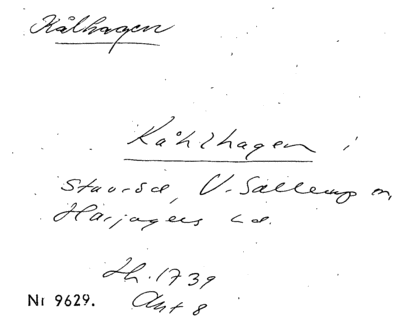 Kålhagen
Kåhlhagen i
Stavröd, V. Sallerup sn,
Harjagers hd.
Jh. 1739
Akt 8
Nr 9629.